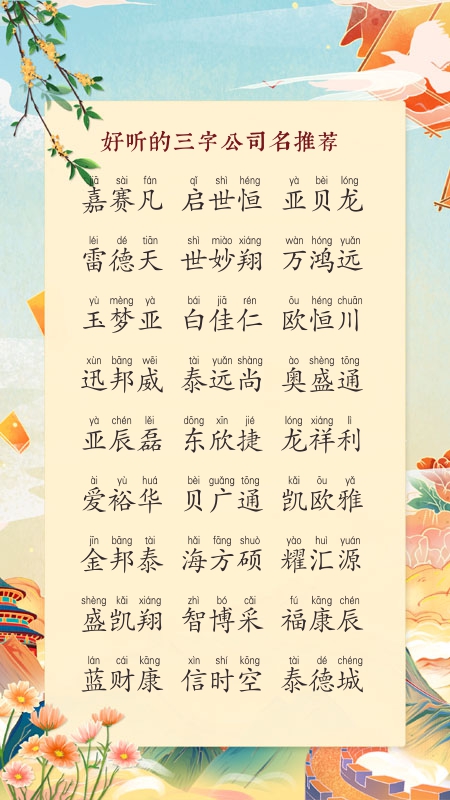 好听的三字公司名推荐
jiā sài fán qǐ shì héng yà bèi lóng
嘉赛凡 启世恒 亚贝龙
léi dé tiān shì miào xiáng wàn hóng yuǎn
雷德天 世妙翔 万鸿远
yù mèng yà bái jiā rén ōu héng chuān
玉梦亚 白佳仁 欧恒川
xùn bāng wēi tài yuǎn shàng ào shèng tōng
迅邦威 泰远尚 奥盛通
yà chén lěi dōng xīn jié lóng xiáng lì
亚辰磊 东欣捷 龙祥利
ài yù huá bèi guǎng tōng kǎi ōu yǎ
爱裕华 贝广通 凯欧雅
jīn bāng tài hǎi fāng shuò yào huì yuán
金邦泰 海方硕 耀汇源
shèng kǎi xiáng zhì bó cǎi fú kāng chén
盛凯翔 智博采 福康辰
lán cái kāng xìn shí kōng tài dé chéng
蓝财康 信时空 泰德城